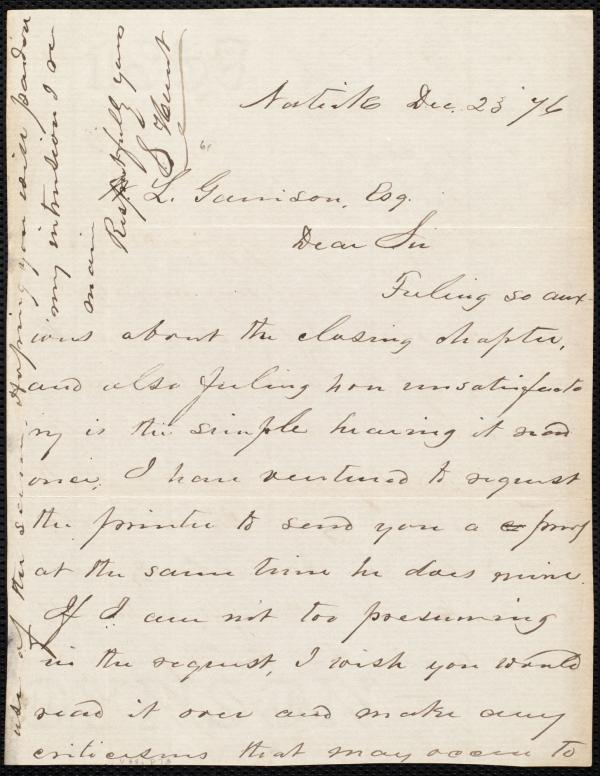 Natick Dec. 23 '76
L. Garrison, Esq.
Dear Sir
Feeling so anx-
ious about the closing chapter,
and also feeling how unsatisfacto
ry is the simple hearing it read
once, I have ventured to request
the printer to send you a proof
at the same time he does mine.
If I am not too presuming
in the request, I wish you would
read it over and make any
criticisms that may occur to
use of the same. Hoping you will pardon
my intrusion I re
main
Respectfully yours
S Hunt